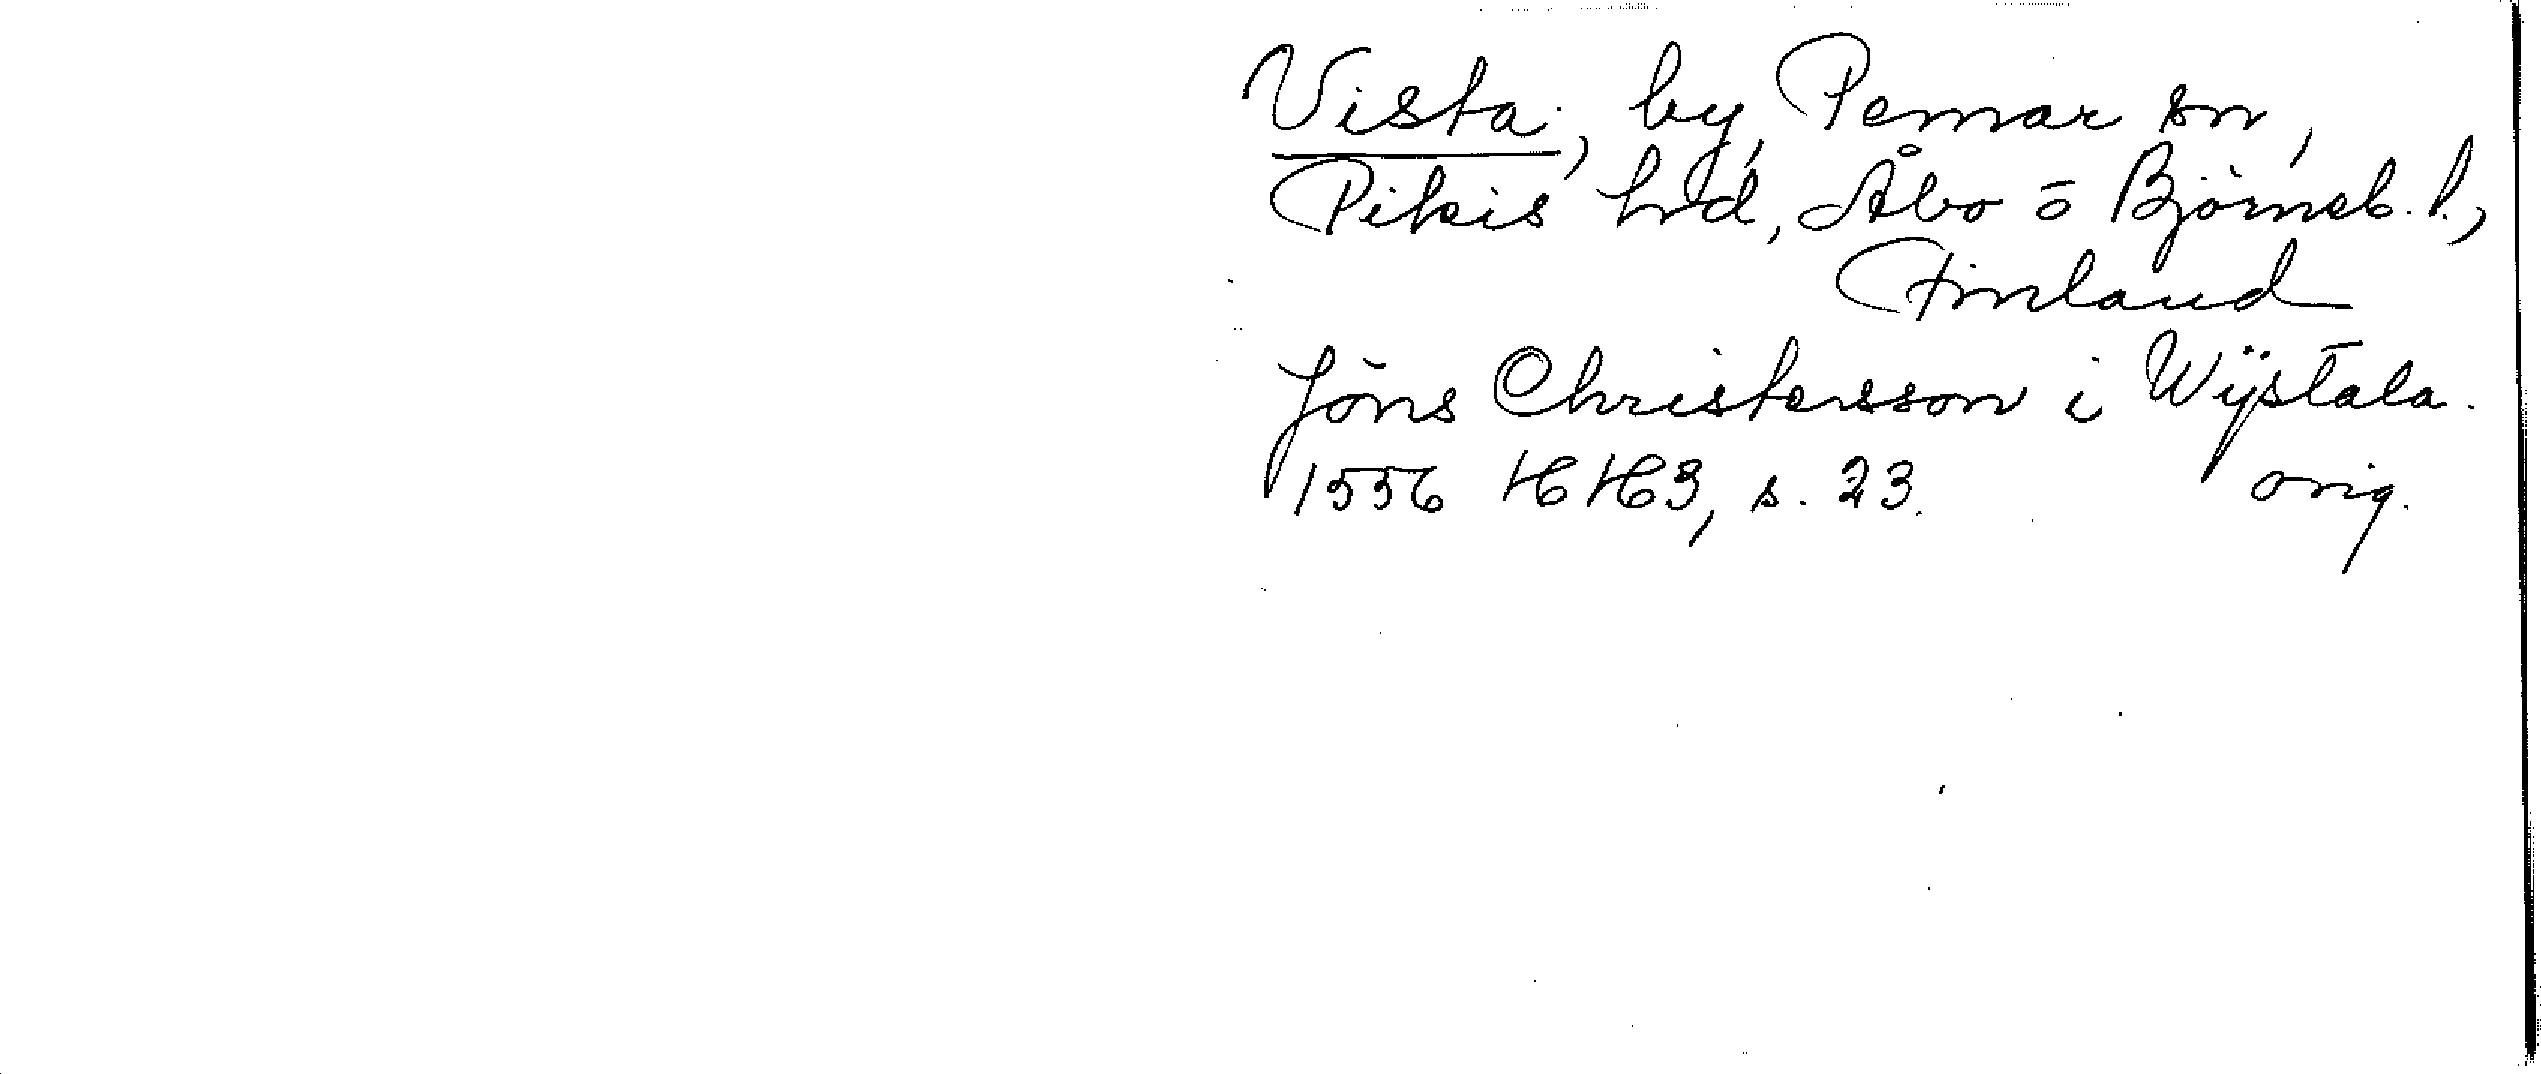 Vista, by, Pemar sn,
Pikis hrd, Åbo o Björneb. l.,
Finland
Jöns Christersson i Wijstala.
1556 HH3, s. 23. orig.